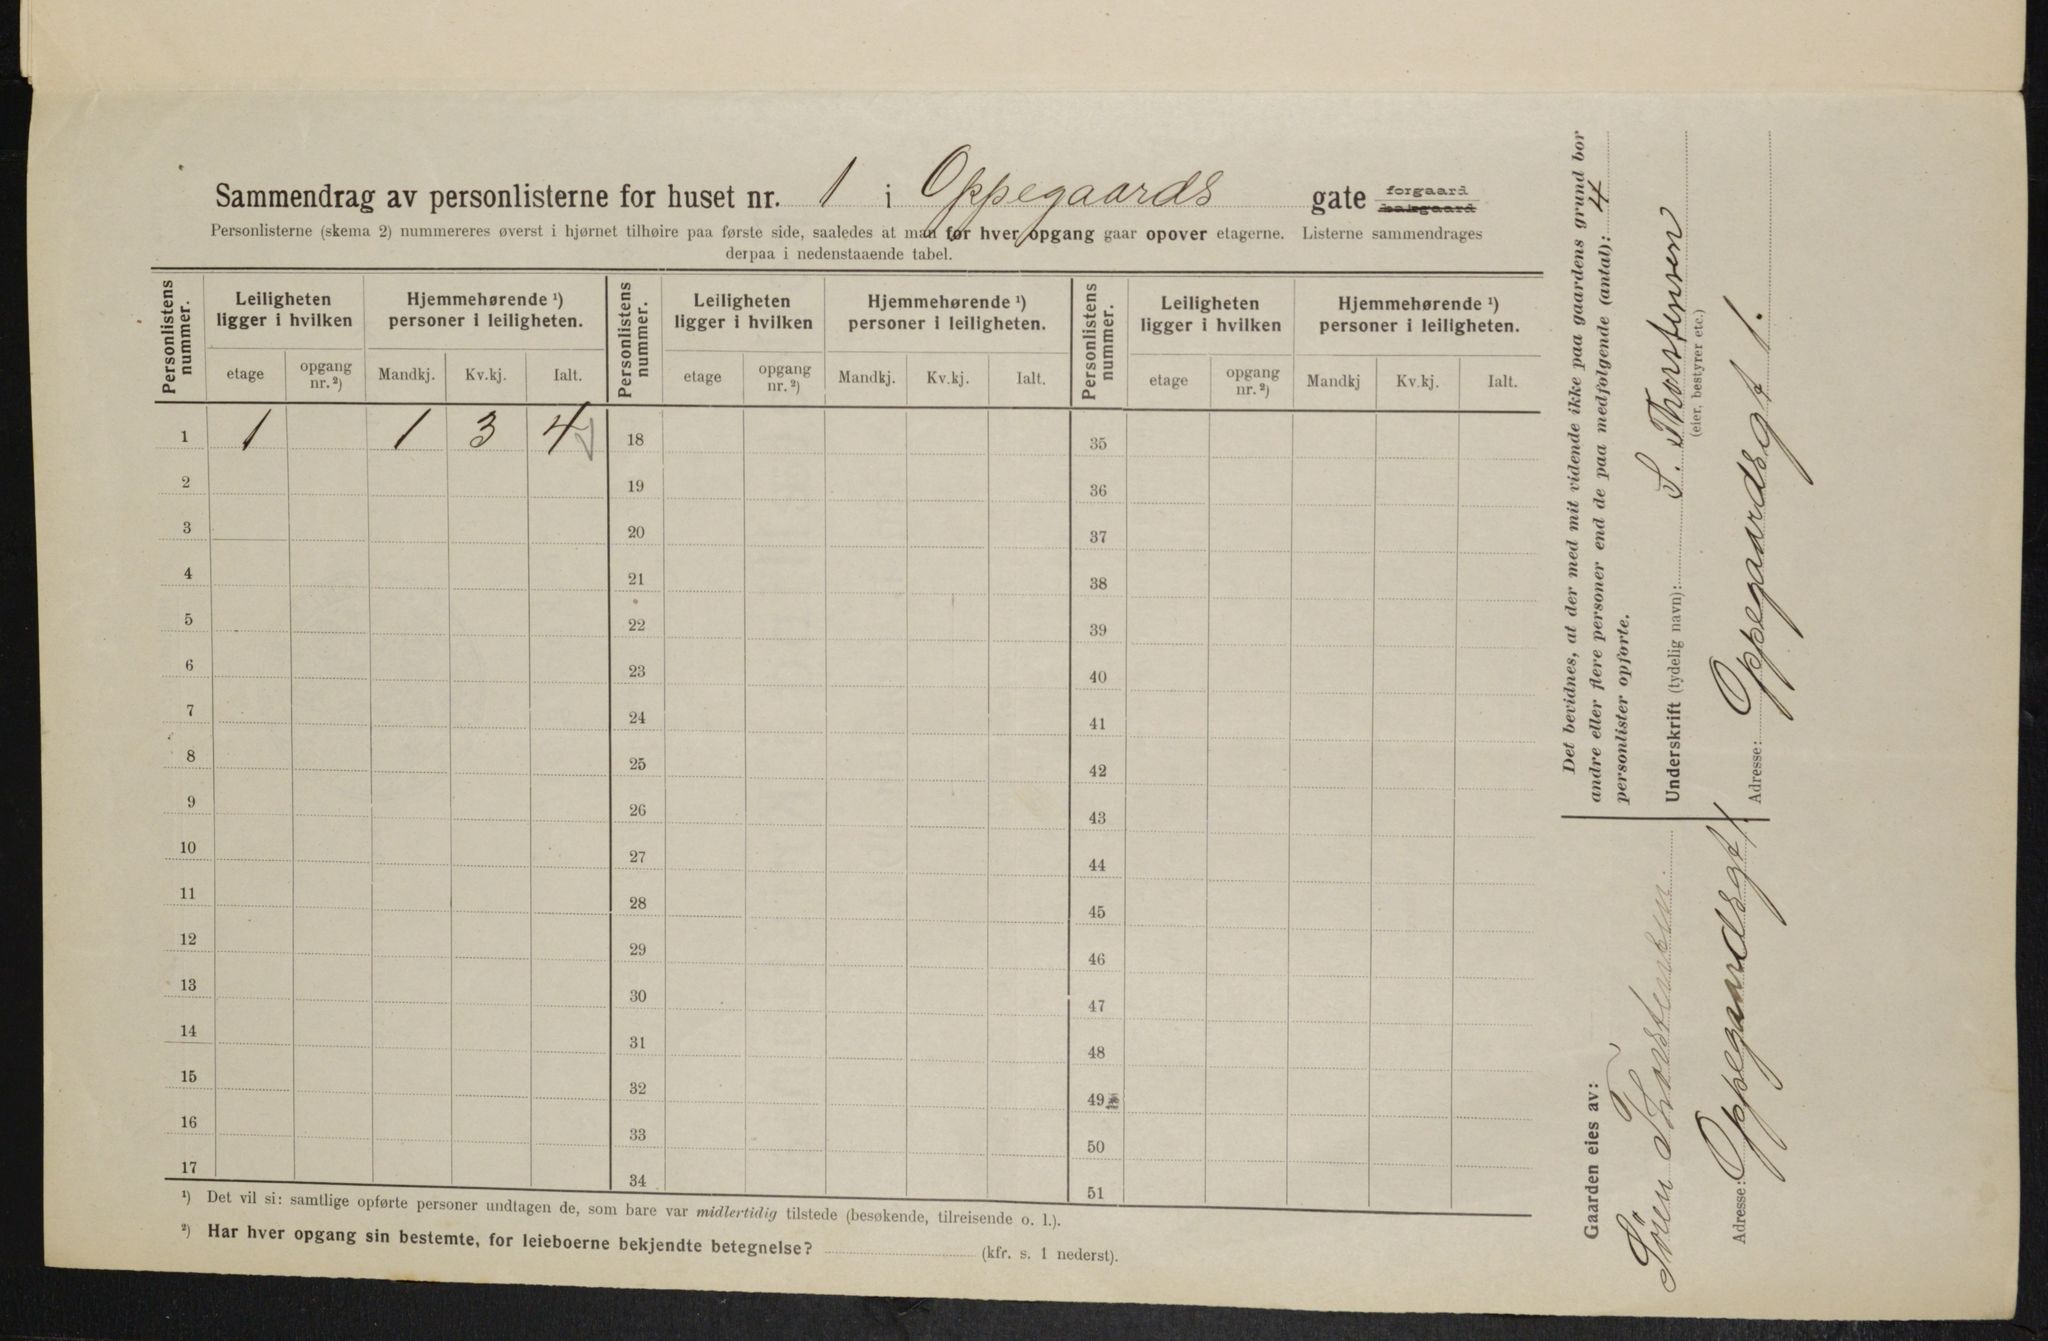 Sammendrag av personlisterne for huset nr. 1 i Oppegaards gate forgaard bakgaard
Personlisterne (skema 2) nummereres øverst i hjørnet tilhøire paa første side, saaledes at man for hver opgang gaar opover etagerne. Listerne sammendrages
derpaa i nedenstaaende tabel.
Personlistens nummer. Leiligheten ligger i hvilken Hjemmehørende ¹) personer i leiligheten. Personlistens nummer. Leiligheten ligger i hvilken Hjemmehørende ¹) personer i leiligheten. Personlistens nummer. Leiligheten ligger i hvilken Hjemmehørende ¹) personer i leiligheten.
etage opgang nr. ²) Mandkj. Kv.kj. Ialt. etage opgang nr. ²) Mandkj. Kv.kj. Ialt. etage opgang nr. ²) Mandkj Kv.kj. Ialt.
1 1 1 3 4 18 35
2 19 36
3 20 37
4 21 38
5 22 39
6 23 40
7 24 41
8 25 42
9 26 43
10 27 44
11 28 45
12 29 46
13 30 47
14 31 48
15 32 49
16 33 50
17 34 51
¹) Det vil si: samtlige opførte personer undtagen de, som bare var midlertidig tilstede (besøkende, tilreisende o. l.).
²) Har hver opgang sin bestemte, for leieboerne bekjendte betegnelse? (kfr. s. 1 nederst).
Det bevidnes, at der med mit vidende ikke paa gaardens grund bor
andre eller flere personer end de paa medfølgende (antal): 4
personlister opførte.
Underskrift (tydelig navn): S. Thorstensen
(eier, bestyrer etc.)
Adresse: Oppegaardsgt 1.
Gaarden eies av:
Sören Thorstensen.
Adresse: Oppegaardsgt 1.